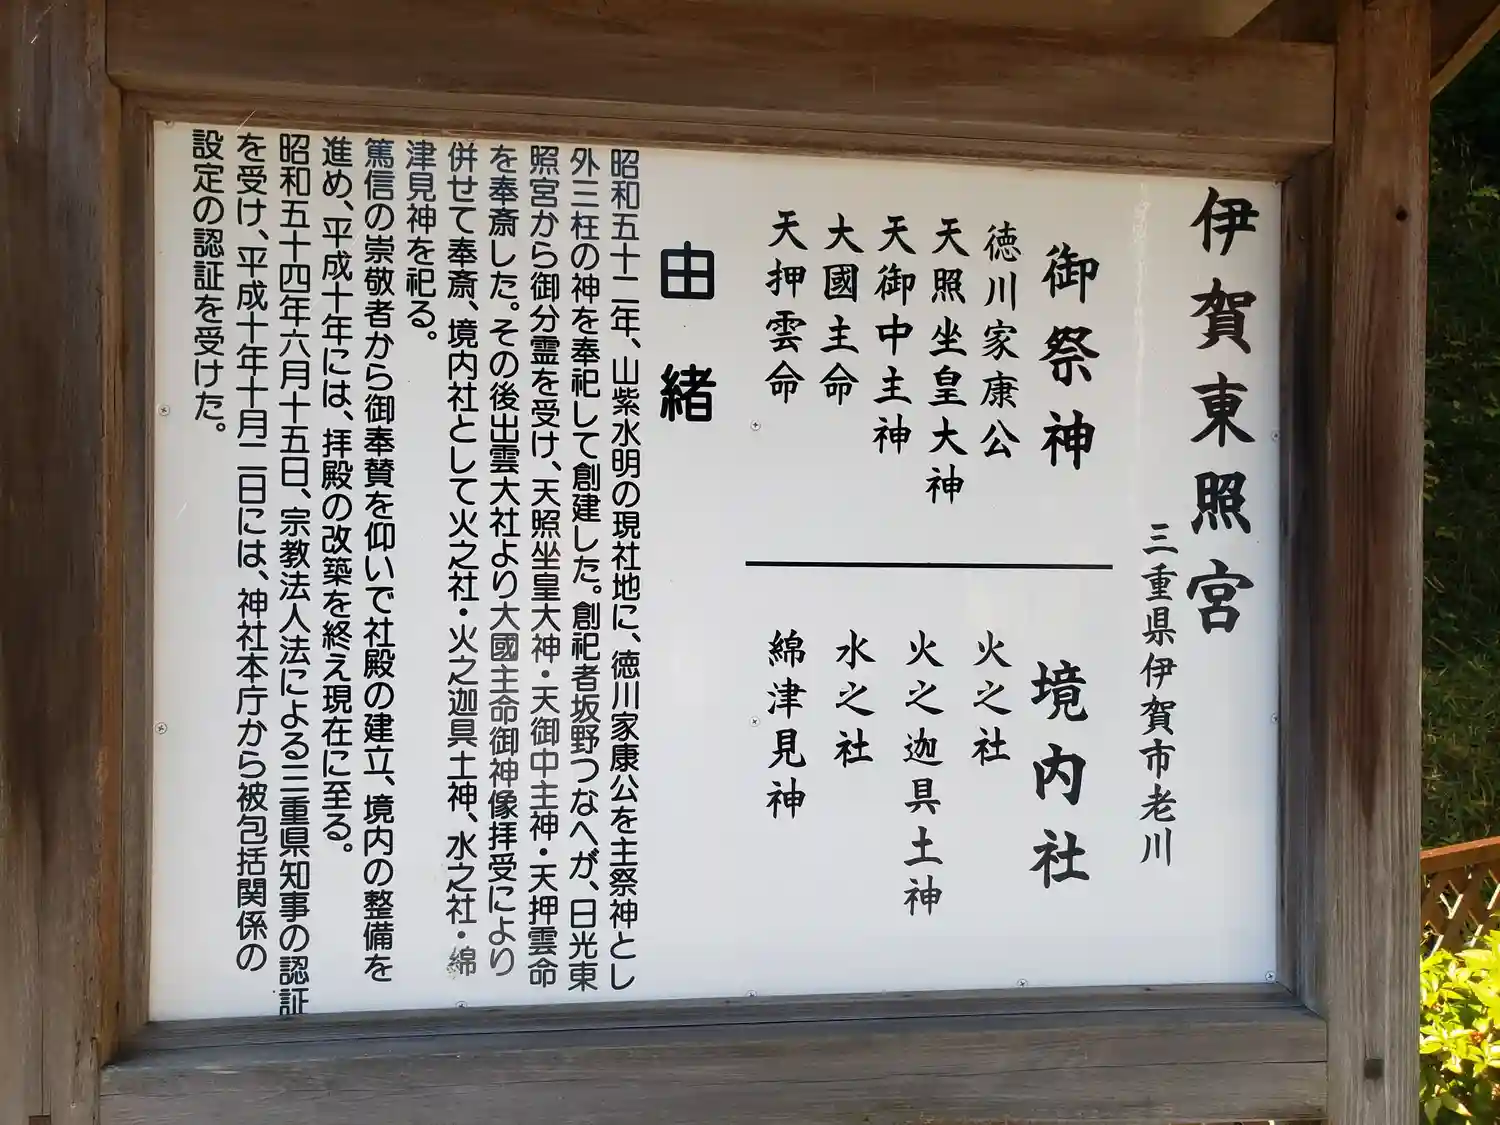 伊賀東照宮
三重県伊賀市老川
御祭神
徳川家康公
天照坐皇大神
天御中主神
大國主命
天押雲命
境内社
火之社
火之迦具土神
水之社
綿津見神
由緒
昭和五十二年、山紫水明の現社地に、徳川家康公を主祭神とし
外三柱の神を奉祀して創建した。創祀者坂野つなへが、日光東
照宮から御分霊を受け、天照坐皇大神・天御中主神・天押雲命
を奉斎した。その後出雲大社より大國主命御神像拝受により
併せて奉斎、境内社として火之社・火之迦具土神、水之社・綿
津見神を祀る。
篤信の崇敬者から御奉賛を仰いで社殿の建立、境内の整備を
進め、平成十年には、拝殿の改築を終え現在に至る。
昭和五十四年六月十五日、宗教法人法による三重県知事の認証
を受け、平成十年十月二日には、神社本庁から被包括関係の
設定の認証を受けた。